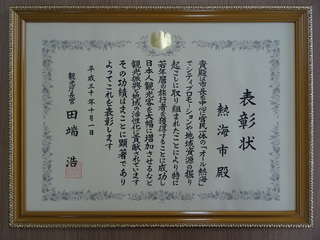 表彰状
熱海市殿
貴殿は市長を中心に官民一体の「オール熱海」
でシティプロモーションや地域資源の掘り
起こしに取り組まれたことにより特に
若年層の旅行者を獲得することに成功し
日本人観光客を大幅に増加させるなど
観光振興と地域の活性化に貢献されています
その功績はまことに顕著であり
よってこれを表彰します
平成三十年十月一日
観光庁長官 田端浩